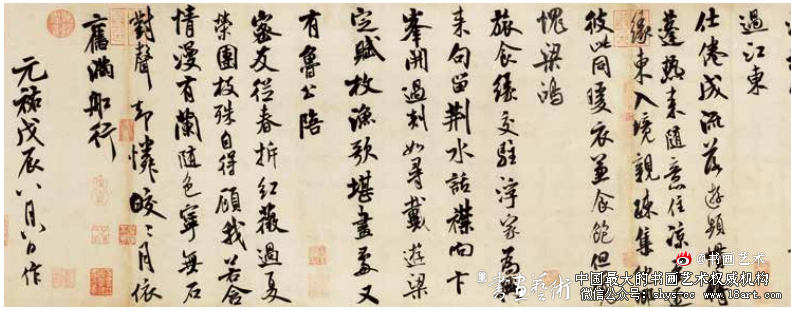 過江東
仕倦成流落遊頻慣
蓬熱來隨意住涼至
緣東入境親疎集
彼此同暖衣兼食飽但
愧梁鴻
旅食緣交駐浮家為
來句留荊水話襟向卞
峯開過剡如尋戴遊梁
定賦枚漁歌堪畫處又
有魯公陪
密友從春拆紅薇過夏
榮團枝殊自得顧我若含
情漫有蘭隨色寧無石
對聲却憐皎〻月依
舊滿船行
元祐戊辰八月八日作
書畫藝術
@书画艺术
中国最大的书画艺术权威机构
微信公众号:shys-cc www.18art.com